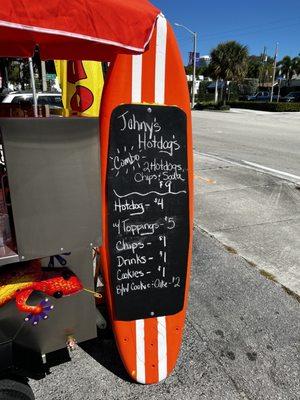 Johnny's
Hotdogs
Combo -
2 Hotdogs
Chips & Soda
$9
Hotdog - $4
w/ Toppings - $5
Chips - $1
Drinks - $1
Cookies - $1
$2